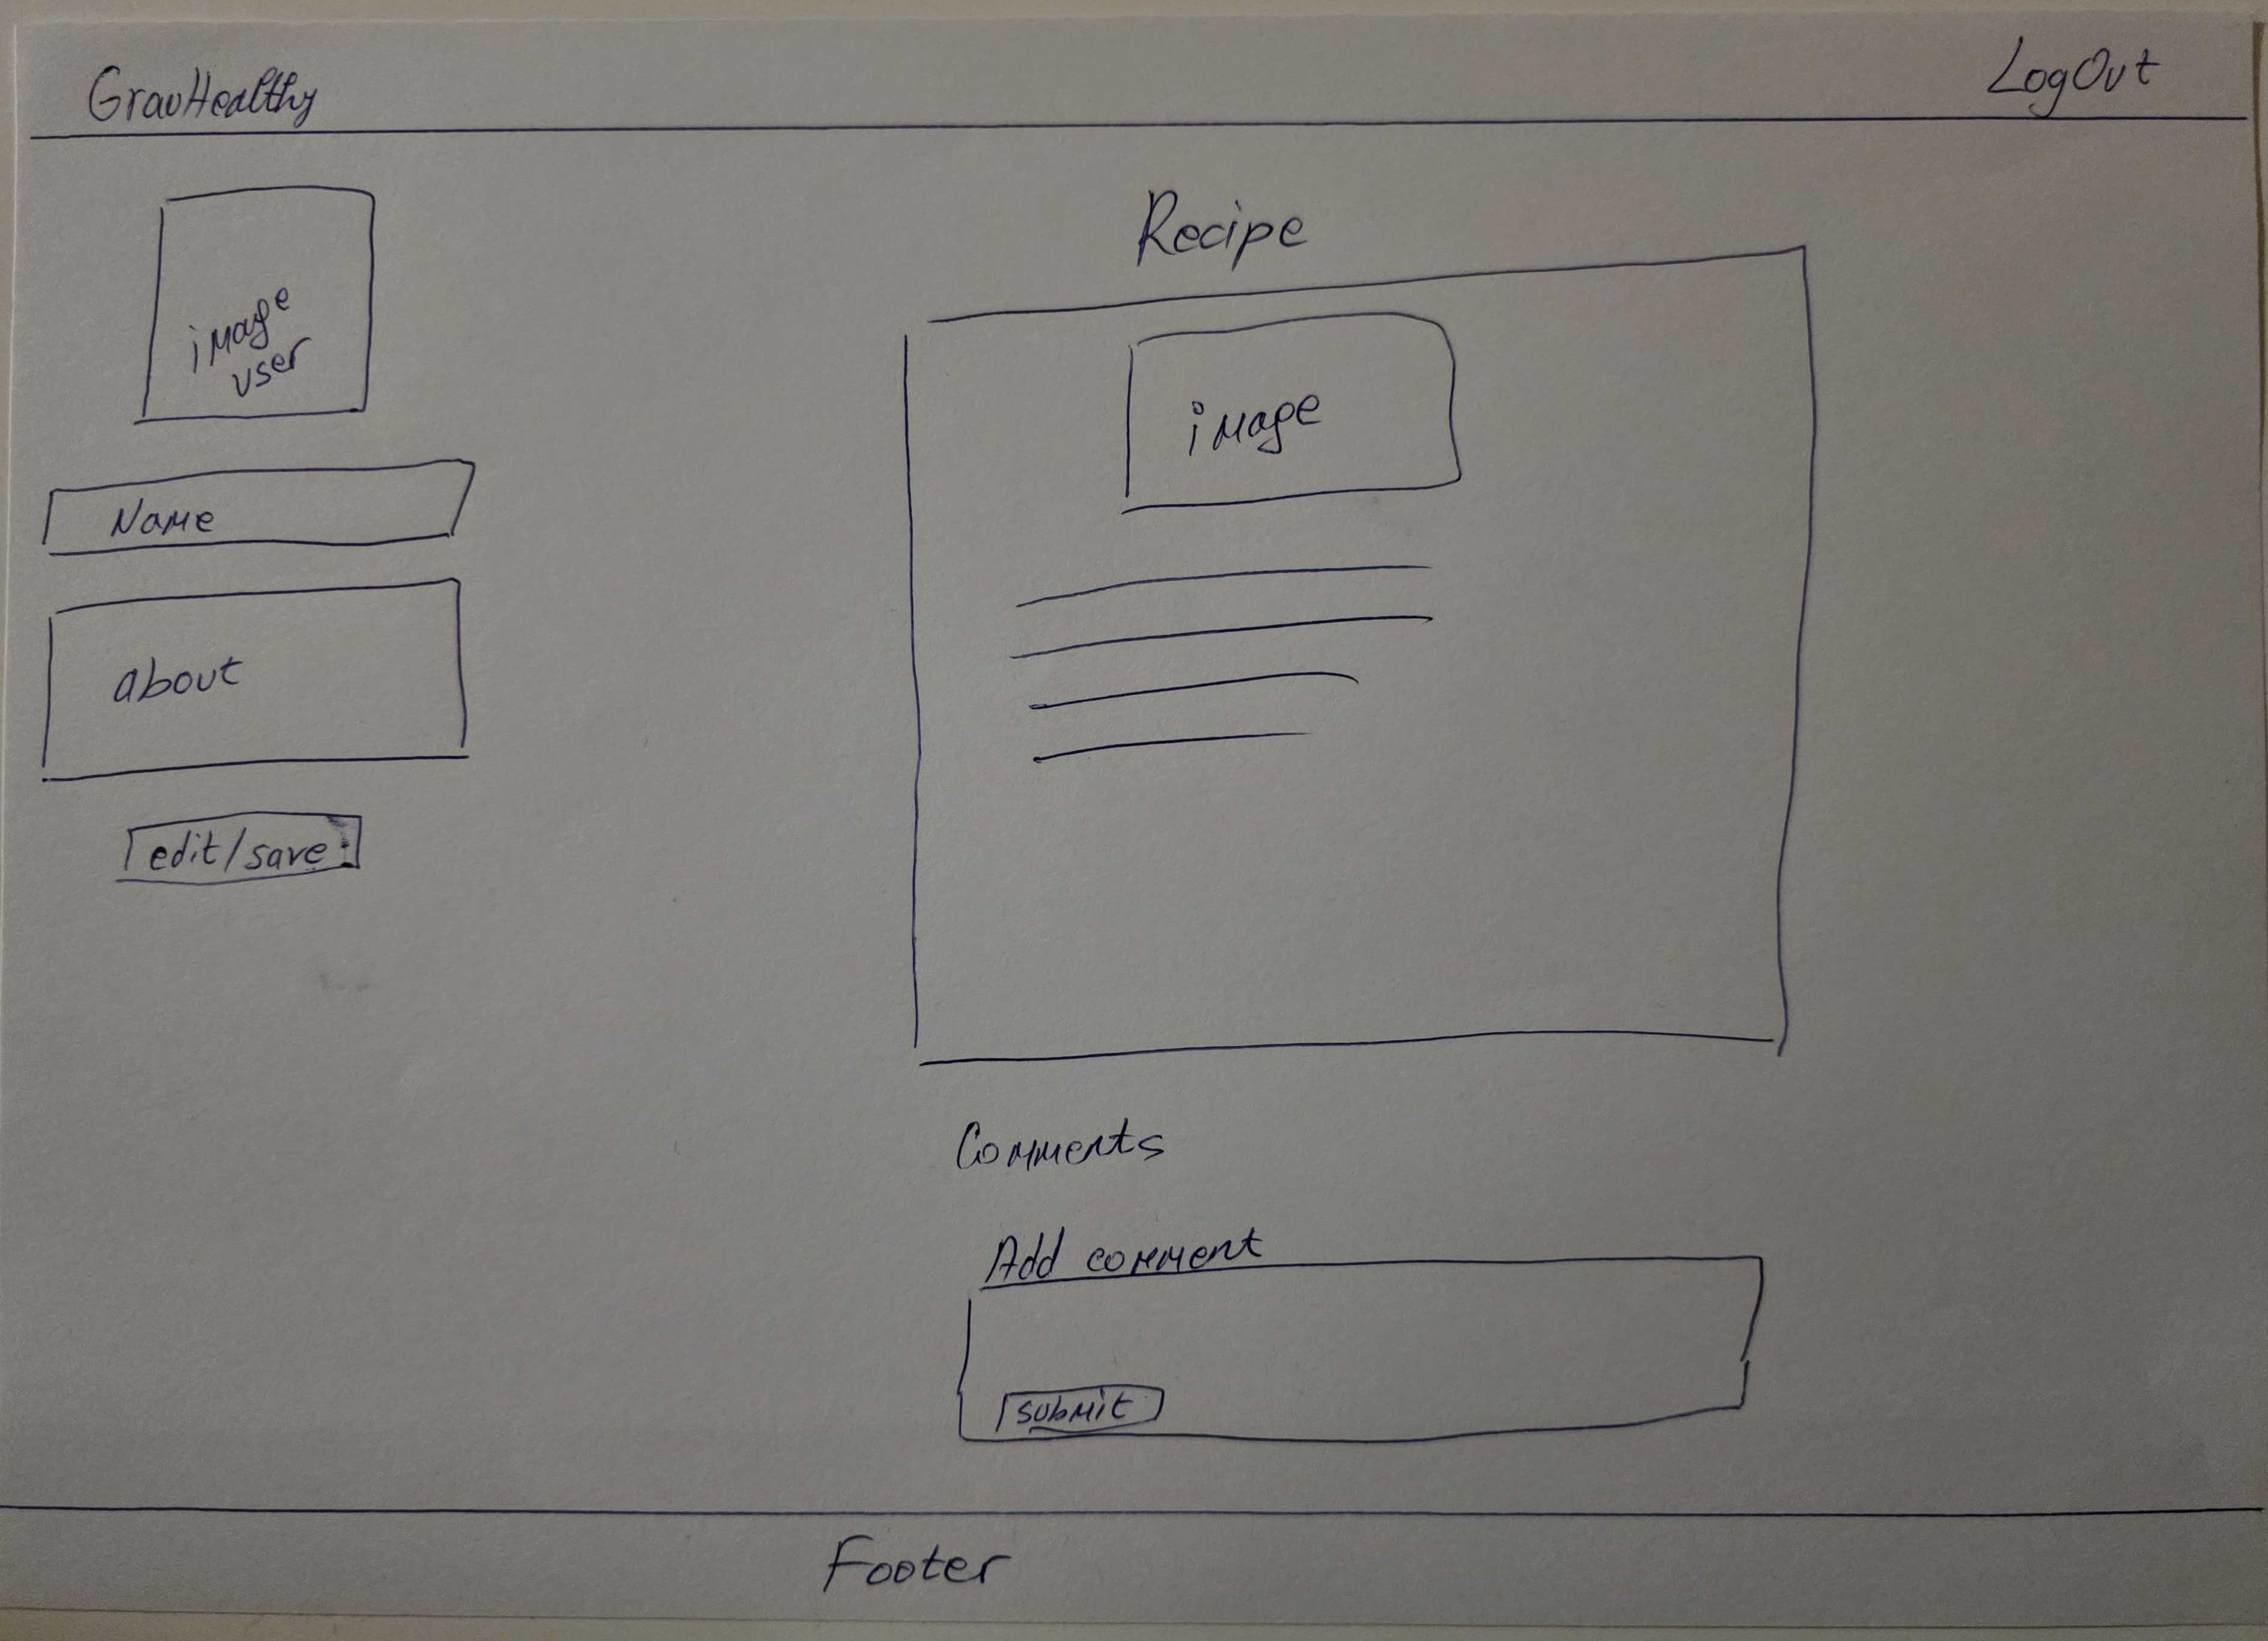 GrauHealthy
LogOut
image
user
Name
about
edit/save
Recipe
image
Comments
Add comment
submit
Footer